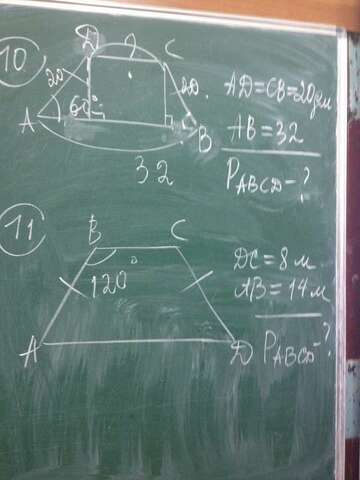 10
D ? C
20 20
AD=CB=20дм
A 60° B
AB=32
32
P ABCD - ?
11
B C
120°
DC=8 м
AB=14 м
A D
P ABCD - ?